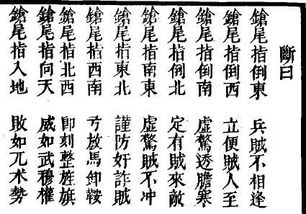 斷曰
鎗尾指倒東　兵賊不相逢
鎗尾指倒西　立便賊人至
鎗尾指倒南　虛驚透膽寒
鎗尾指倒北　定有賊來敵
鎗尾指南東　虛驚賊不冲
鎗尾指東北　謹防奸詐賊
鎗尾指西南　弓放馬卸鞍
鎗尾指北西　即刻整旌旗
鎗尾指向天　威如武穆權
鎗尾指入地　敗如兀术勢